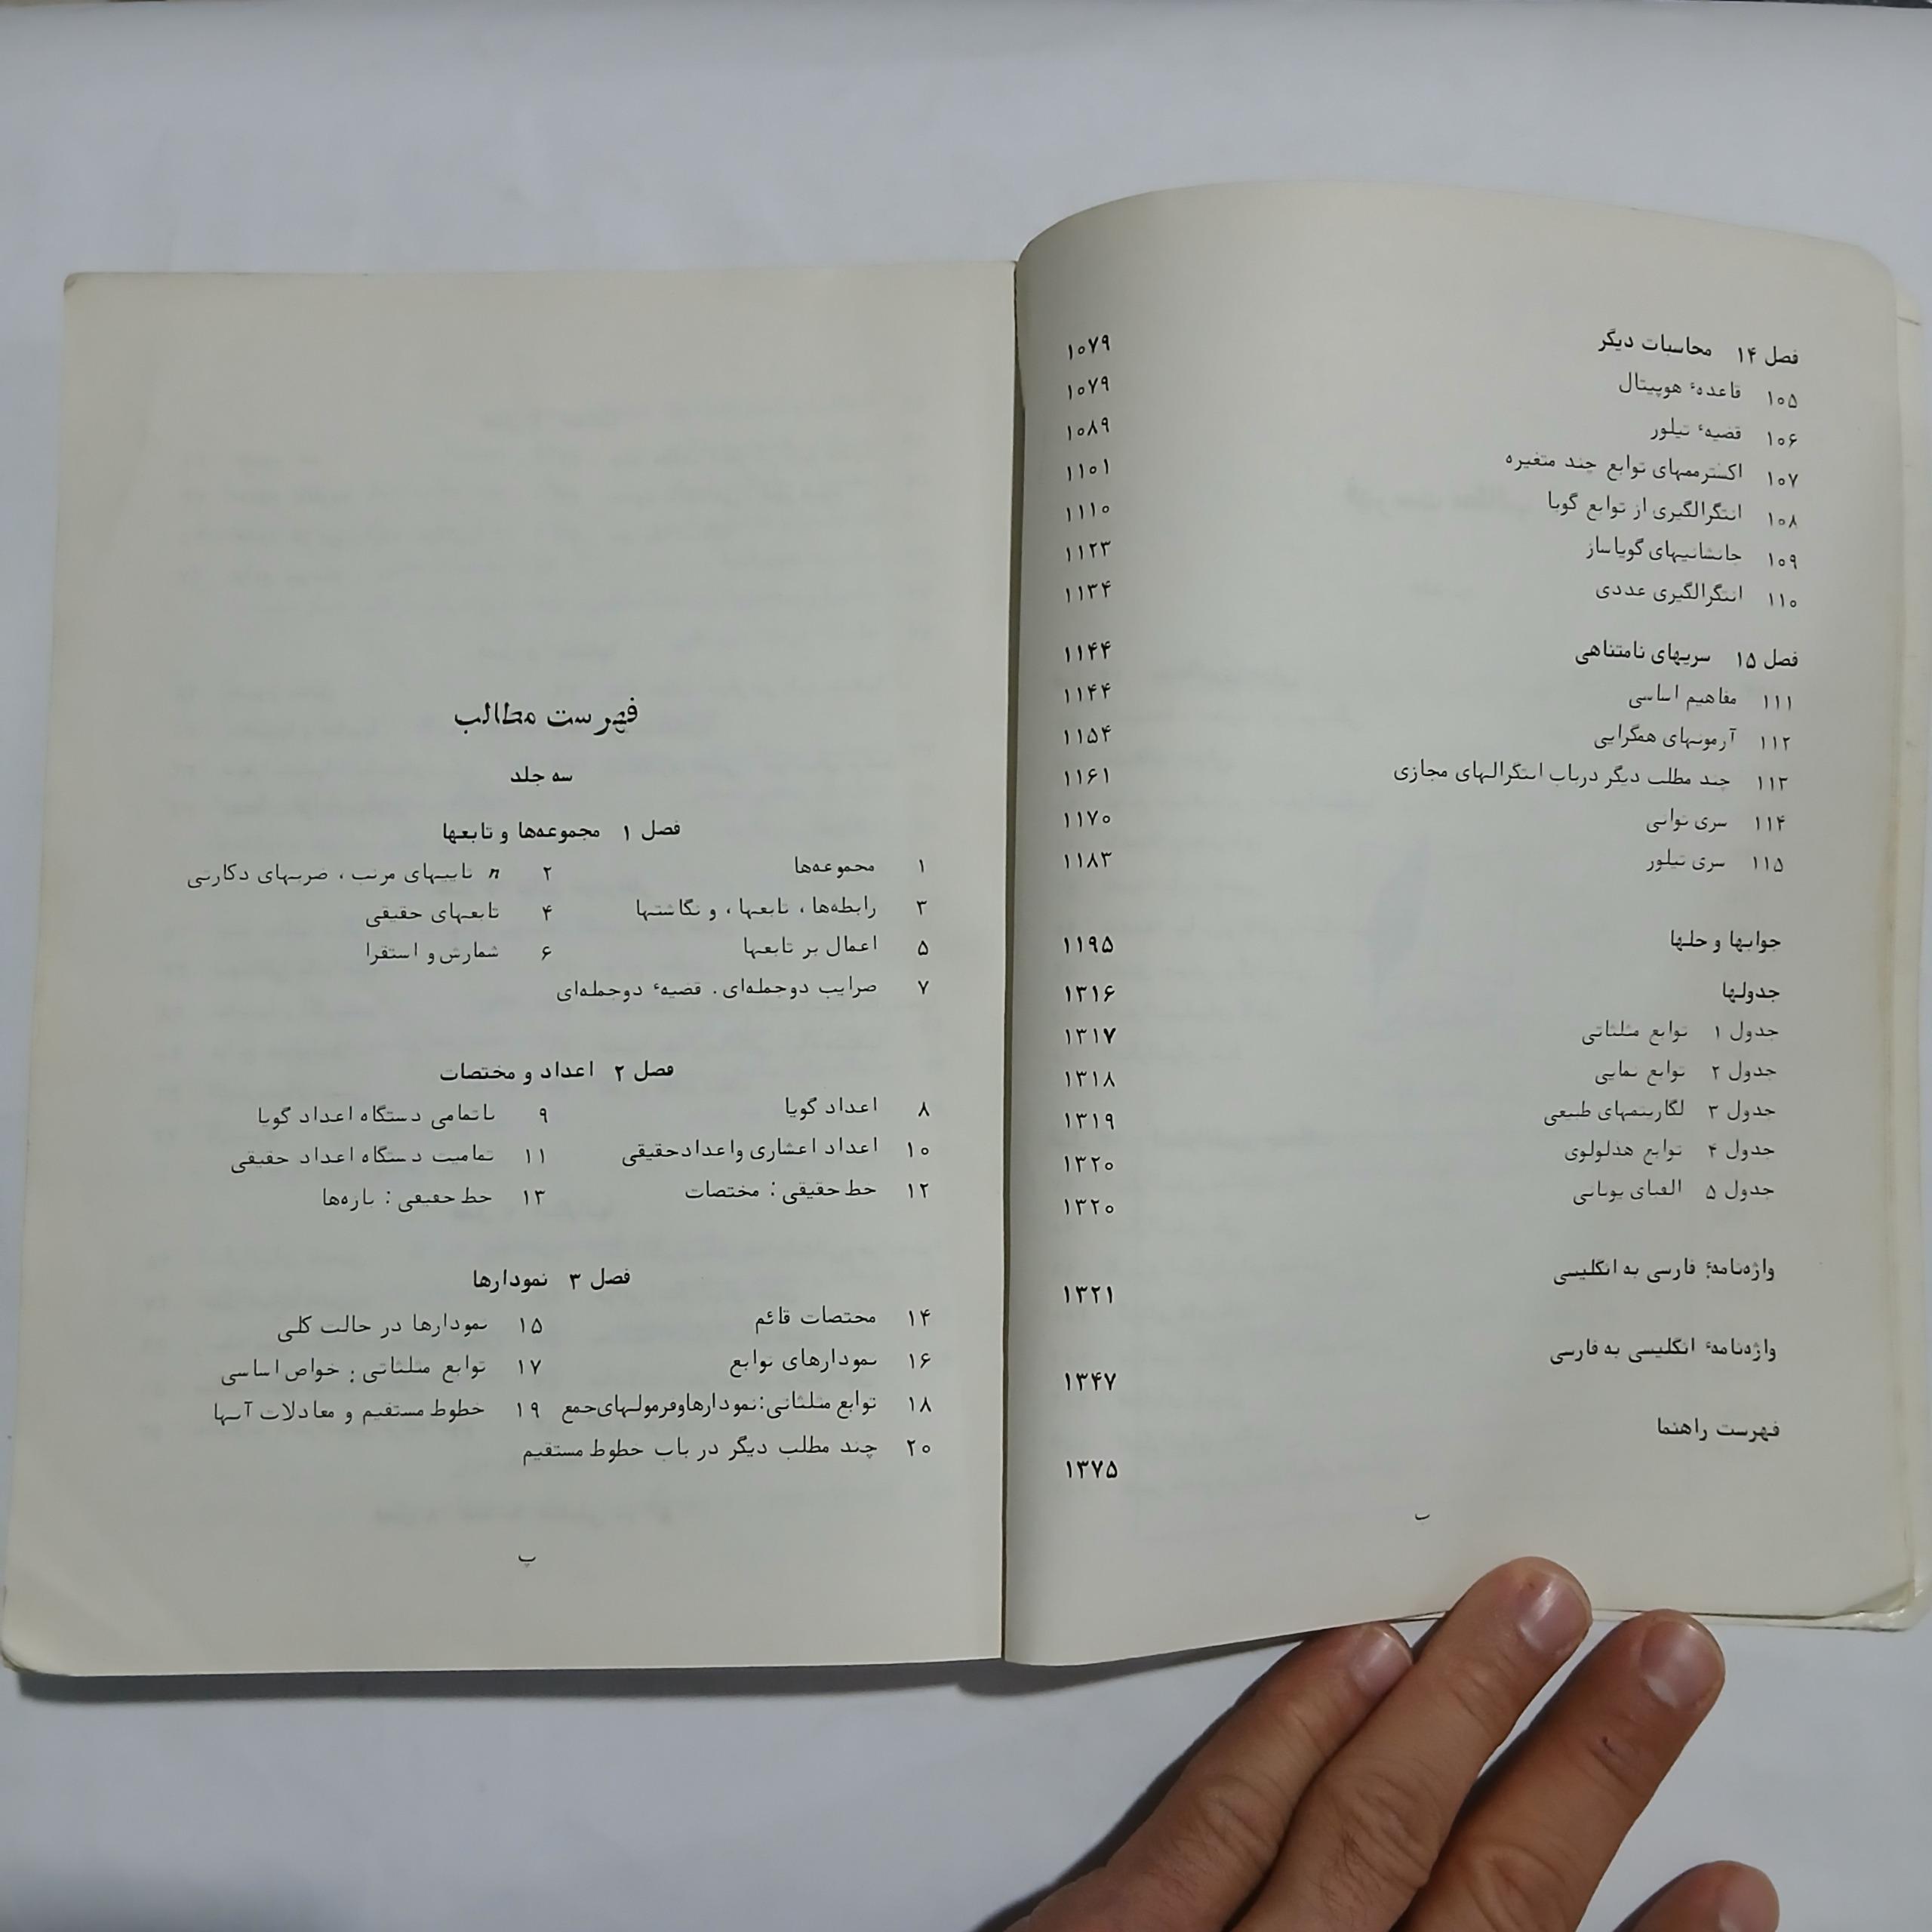 فصل ۱۴ محاسبات دیگر ۱۰۷۹
۱۰۵ قاعدهٔ هوپیتال ۱۰۷۹
۱۰۶ قضیهٔ تیلور ۱۰۸۹
۱۰۷ اکسترممهای توابع چند متغیره ۱۱۰۱
۱۰۸ انتگرالگیری از توابع گویا ۱۱۱۰
۱۰۹ جانشانیهای گویاساز ۱۱۲۳
۱۱۰ انتگرالگیری عددی ۱۱۳۴
فصل ۱۵ سریهای نامتناهی ۱۱۴۴
۱۱۱ مفاهیم اساسی ۱۱۴۴
۱۱۲ آزمونهای همگرایی ۱۱۵۴
۱۱۳ چند مطلب دیگر درباب انتگرالهای مجازی ۱۱۶۱
۱۱۴ سری توانی ۱۱۷۰
۱۱۵ سری تیلور ۱۱۸۳
جوابها و حلها ۱۱۹۵
جدولها ۱۳۱۶
جدول ۱ توابع مثلثاتی ۱۳۱۷
جدول ۲ توابع نمایی ۱۳۱۸
جدول ۳ لگاریتمهای طبیعی ۱۳۱۹
جدول ۴ توابع هذلولوی ۱۳۲۰
جدول ۵ الفبای یونانی ۱۳۲۰
واژه‌نامهٔ فارسی به انگلیسی ۱۳۲۱
واژه‌نامهٔ انگلیسی به فارسی ۱۳۴۷
فهرست راهنما ۱۳۷۵
ب
فهرست مطالب
سه جلد
فصل ۱ مجموعه‌ها و تابعها
۱ مجموعه‌ها ۲ n تاییهای مرتب، ضربهای دکارتی
۳ رابطه‌ها، تابعها، و نگاشتها ۴ تابعهای حقیقی
۵ اعمال بر تابعها ۶ شمارش و استقرا
۷ ضرایب دوجمله‌ای. قضیهٔ دوجمله‌ای
فصل ۲ اعداد و مختصات
۸ اعداد گویا ۹ ناتمامی دستگاه اعداد گویا
۱۰ اعداد اعشاری و اعداد حقیقی ۱۱ تمامیت دستگاه اعداد حقیقی
۱۲ خط حقیقی: مختصات ۱۳ خط حقیقی: بازه‌ها
فصل ۳ نمودارها
۱۴ مختصات قائم ۱۵ نمودارها در حالت کلی
۱۶ نمودارهای توابع ۱۷ توابع مثلثاتی: خواص اساسی
۱۸ توابع مثلثاتی: نمودارها و فرمولهای جمع ۱۹ خطوط مستقیم و معادلات آنها
۲۰ چند مطلب دیگر در باب خطوط مستقیم
پ